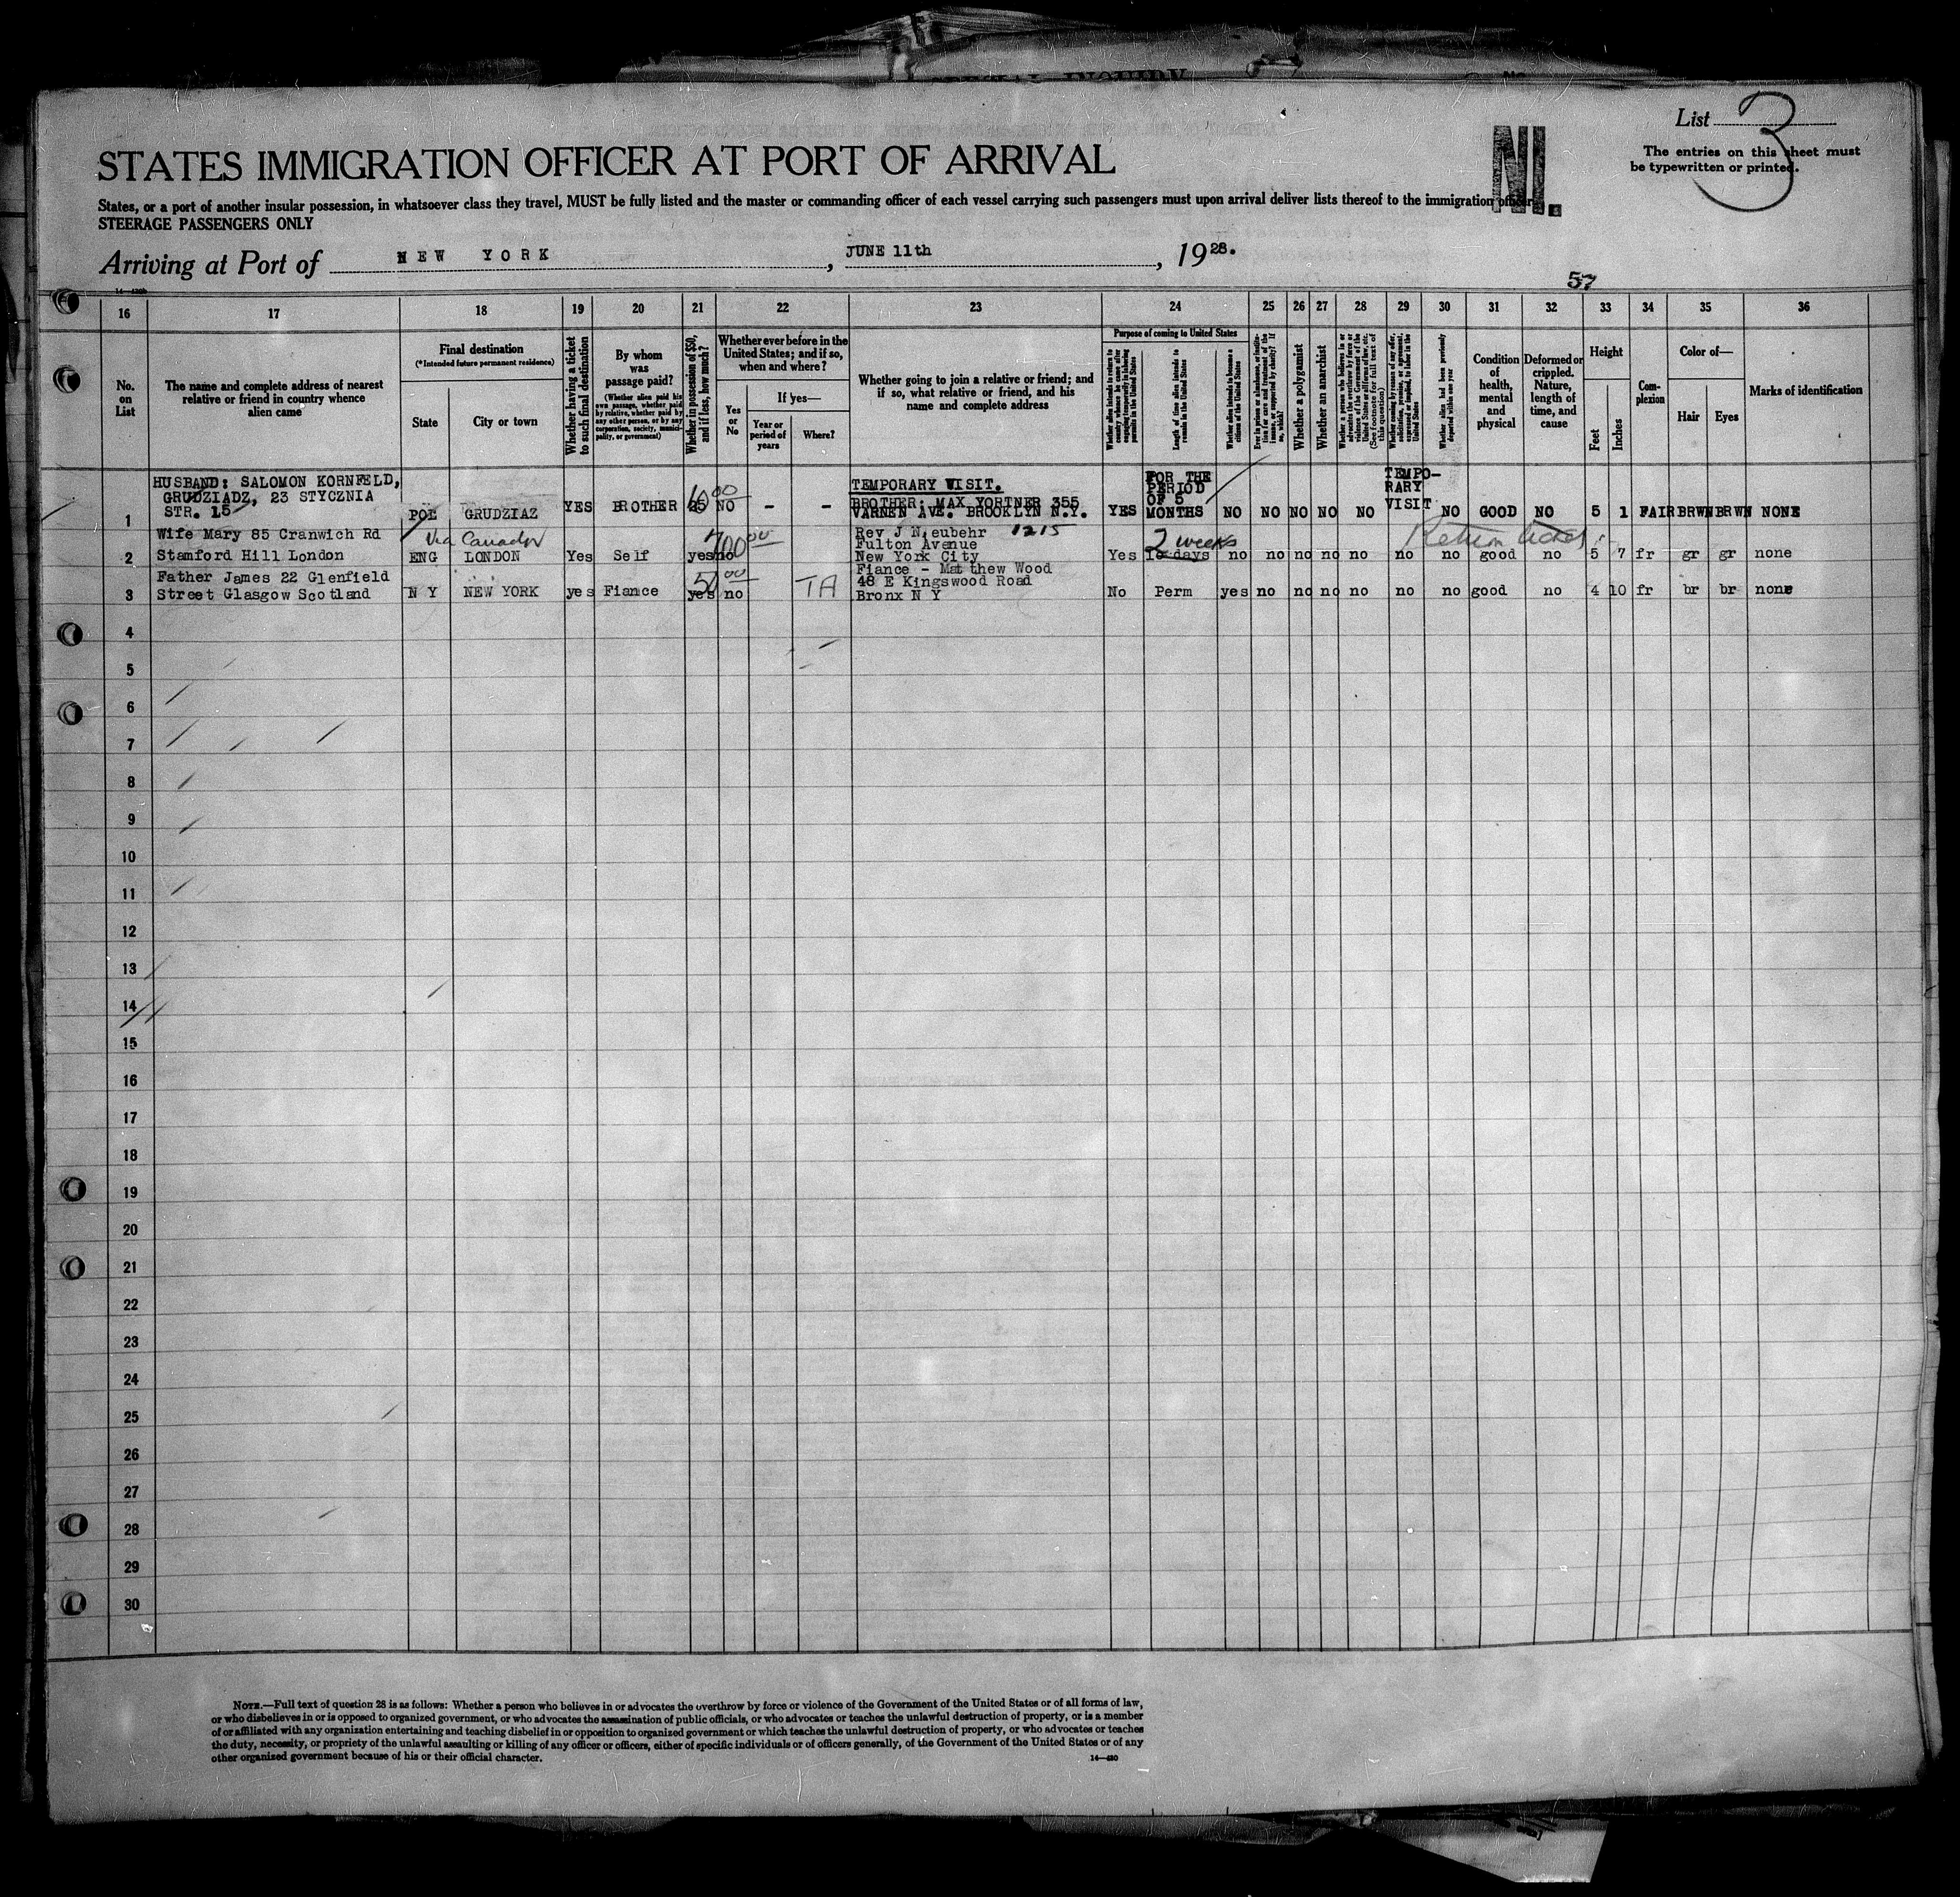 List 3
The entries on this sheet must
be typewritten or printed.
NI.
STATES IMMIGRATION OFFICER AT PORT OF ARRIVAL
States, or a port of another insular possession, in whatsoever class they travel, MUST be fully listed and the master or commanding officer of each vessel carrying such passengers must upon arrival deliver lists thereof to the immigration officer.
STEERAGE PASSENGERS ONLY
Arriving at Port of NEW YORK, JUNE 11th, 1928.
57
16 17 18 19 20 21 22 23 24 25 26 27 28 29 30 31 32 33 34 35 36
No. on List
The name and complete address of nearest
relative or friend in country whence
alien came
Final destination
(*Intended future permanent residence)
State
City or town
Whether having a ticket
to such final destination
By whom
was
passage paid?
(Whether alien paid his
own passage, whether paid
by relative, whether paid by
any other person, or by any
corporation, society, munici-
pality, or government)
Whether in possession of $50,
and if less, how much?
Whether ever before in the
United States; and if so,
when and where?
Yes or No
If yes—
Year or
period of
years
Where?
Whether going to join a relative or friend; and
if so, what relative or friend, and his
name and complete address
Purpose of coming to United States
Length of time alien intends to
remain in the United States
Whether alien intends to become a
citizen of the United States
Whether a polygamist
Whether an anarchist
Condition
of
health,
mental
and
physical
Deformed or
crippled.
Nature,
length of
time, and
cause
Height
Feet
Inches
Com-
plexion
Color of—
Hair
Eyes
Marks of identification
HUSBAND: SALOMON KORNFELD,
GRUDZIADZ, 23 STYCZNIA
STR. 15
1 POL GRUDZIAZ YES BROTHER NO - -
TEMPORARY VISIT.
BROTHER: MAX YORTNER 355
VARNEN AVE. BROOKLYN N.Y.
YES FOR THE
PERIOD
OF 5
MONTHS NO NO NO NO NO TEMPO-
RARY
VISIT NO GOOD NO 5 1 FAIR BRWN BRWN NONE
Wife Mary 85 Cranwich Rd
2 Stamford Hill London
Via Canada
ENG LONDON Yes Self yes no 400 00
Rev J N eubehr 1215
Fulton Avenue
New York City
Yes 2 weeks
10 days no no no no no no no good no 5 7 fr gr gr none
Return ticket
Father James 22 Glenfield
3 Street Glasgow Scotland
N Y NEW YORK yes Fiance 50 00 yes no TA
Fiance - Matthew Wood
48 E Kingswood Road
Bronx N Y
No Perm yes no no no no no no good no 4 10 fr br br none
4
5
6
7
8
9
10
11
12
13
14
15
16
17
18
19
20
21
22
23
24
25
26
27
28
29
30
NOTE.—Full text of question 28 is as follows: Whether a person who believes in or advocates the overthrow by force or violence of the Government of the United States or of all forms of law,
or who disbelieves in or is opposed to organized government, or who advocates the assassination of public officials, or who advocates or teaches the unlawful destruction of property, or is a member
of or affiliated with any organization entertaining and teaching disbelief in or opposition to organized government or which teaches the unlawful destruction of property, or who advocates or teaches
the duty, necessity, or propriety of the unlawful assaulting or killing of any officer or officers, either of specific individuals or of officers generally, of the Government of the United States or of any
other organized government because of his or their official character.
14—430